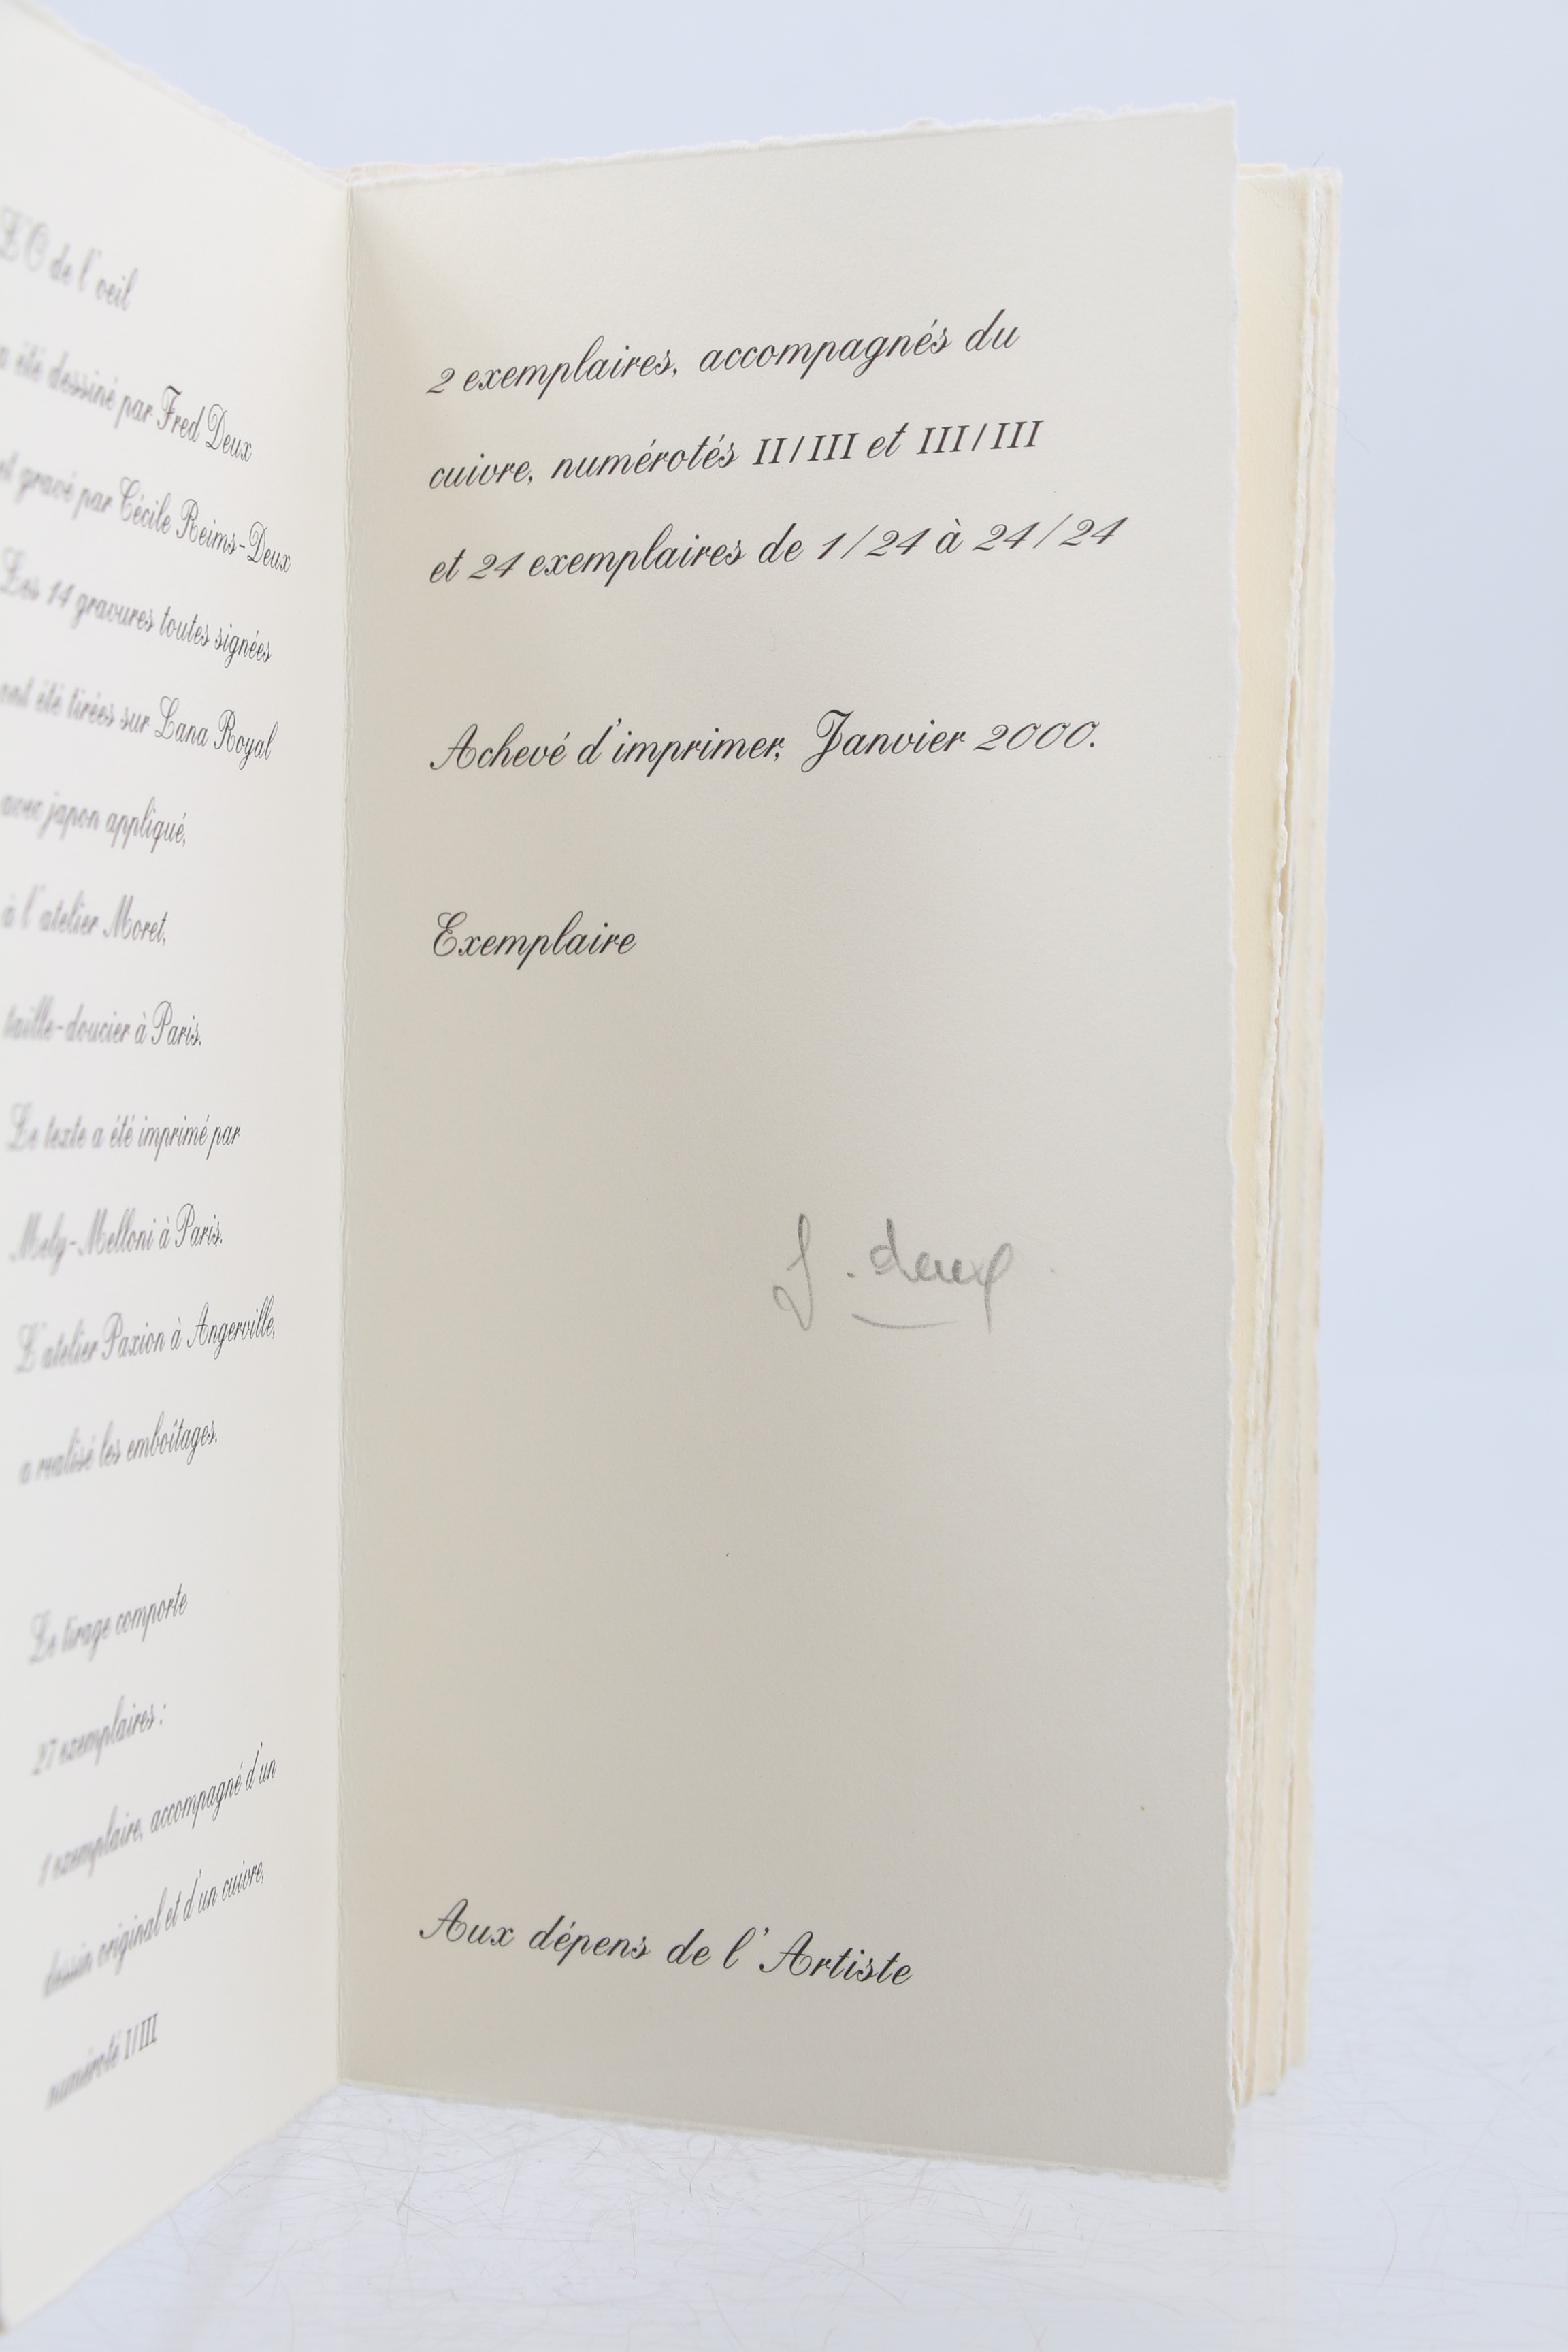 L'O de l'oeil
a été dessiné par Fred Deux
et gravé par Cécile Reims-Deux
Les 14 gravures toutes signées
ont été tirées sur Lana Royal
avec japon appliqué,
à l'atelier Moret,
taille-doucier à Paris.
Le texte a été imprimé par
Mely-Melloni à Paris.
L'atelier Paxion à Angerville,
a realisé les emboîtages.
Le tirage comporte
27 exemplaires :
1 exemplaire, accompagné d'un
dessin original et d'un cuivre,
numéroté I/III
2 exemplaires, accompagnés du
cuivre, numérotés II/III et III/III
et 24 exemplaires de 1/24 à 24/24
Achevé d'imprimer, Janvier 2000.
Exemplaire
f. deux
Aux dépens de l'Artiste